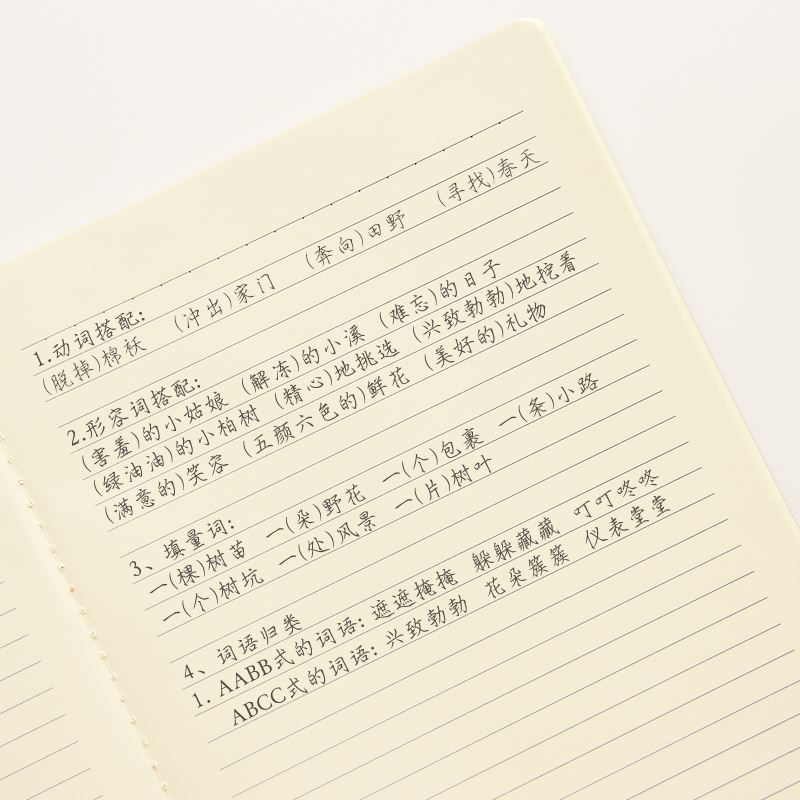 1.动词搭配:
(脱掉)棉袄 (冲出)家门 (奔向)田野 (寻找)春天
2.形容词搭配:
(害羞)的小姑娘 (解冻)的小溪 (难忘)的日子
(绿油油)的小柏树 (精心)地挑选 (兴致勃勃)地挖着
(满意的)笑容 (五颜六色的)鲜花 (美好的)礼物
3、填量词:
一(棵)树苗 一(朵)野花 一(个)包裹 一(条)小路
一(个)树坑 一(处)风景 一(片)树叶
4、词语归类
1. AABB式的词语: 遮遮掩掩 躲躲藏藏 叮叮咚咚
ABCC式的词语: 兴致勃勃 花朵簇簇 仪表堂堂